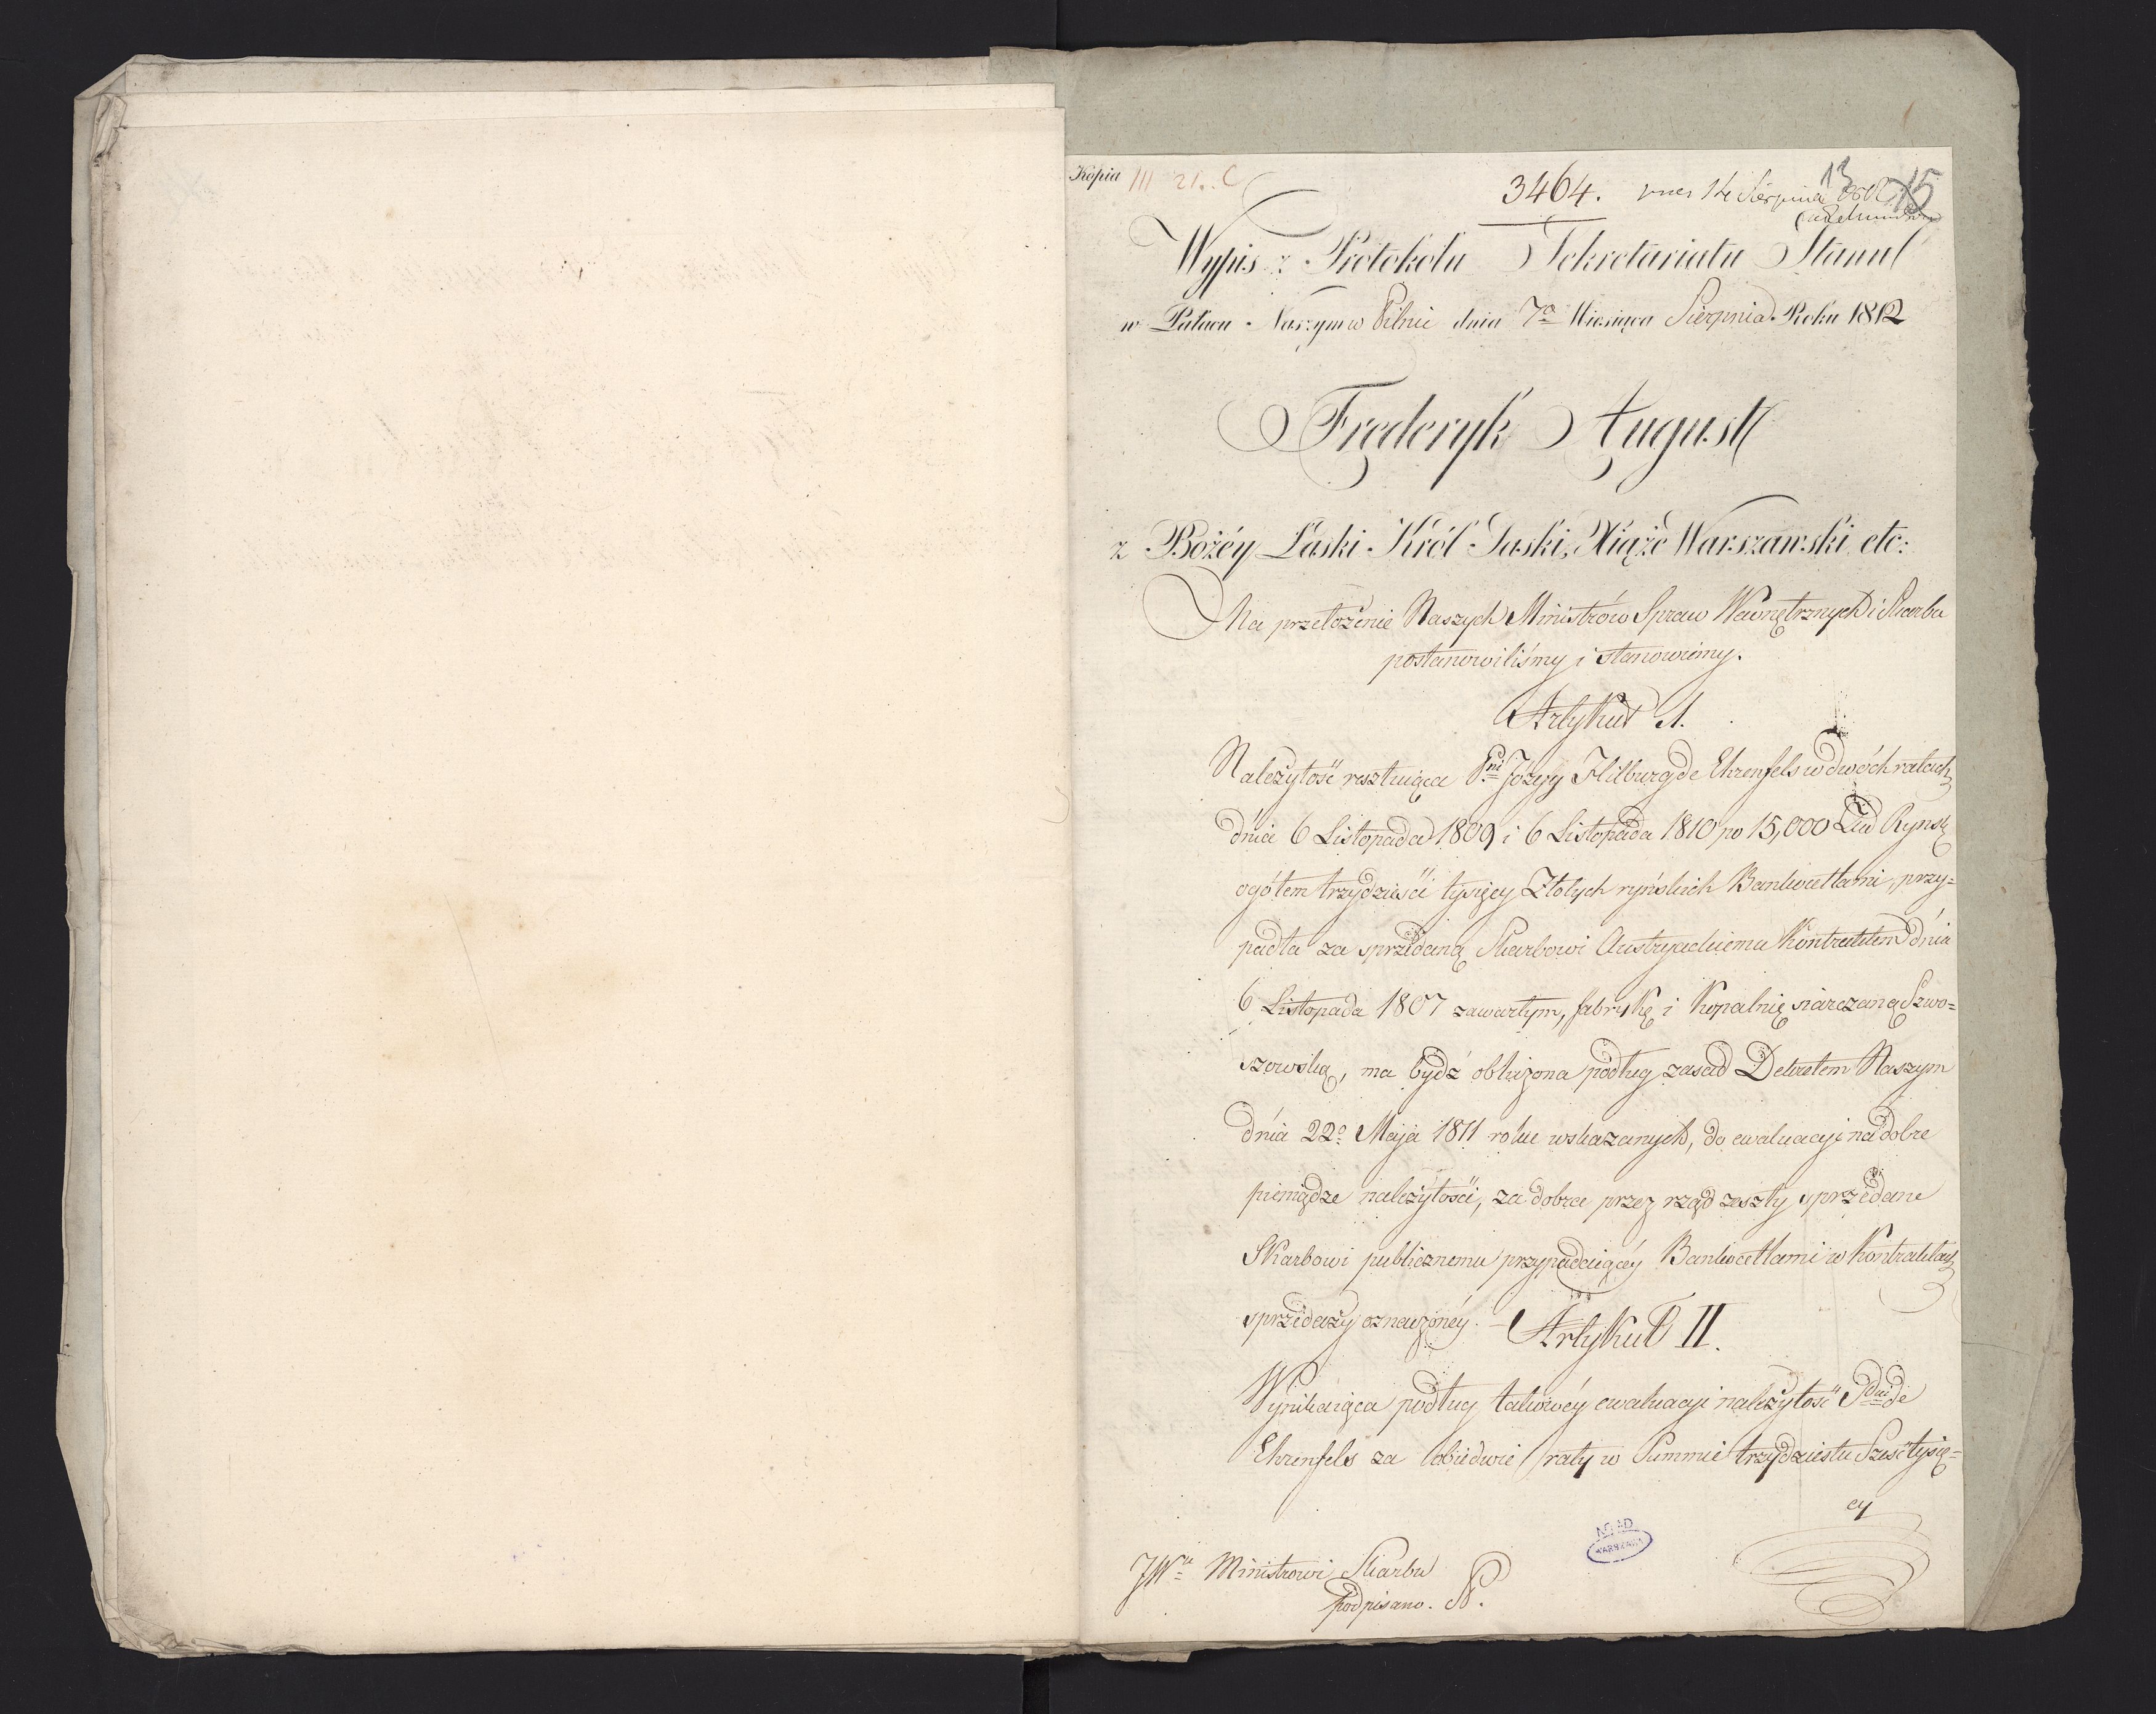 Kopia III 21. C
3464. 14 Sierpnia 13 15
Wypis z Protokołu Sekretariatu Stanu
w Pałacu Naszym w Pilnie dnia 7º Miesiąca Sierpnia Roku 1812
Fryderyk August
z Bożéy Łaski Król Saski, Xiąże Warszawski etc:
Na przełożenie Naszych Ministrów Spraw Wewnętrznych i Skarbu
postanowiliśmy i stanowiemy.
Artykuł 1.
Należytość resztuiąca Pni Józefy Hilburg de Ehrenfels w dwóch ratach
dnia 6 Listopada 1809 i 6 Listopada 1810 po 15,000 Rynsk
ogółem trzydzieści tysięcy Złotych ryńskich Bankocetlami, przy=
padła za sprzedaną Skarbowi Austryackiemu Kontraktem dnia
6 Listopada 1807 zawartym, fabrykę i Kopalnię siarczaną Szwo=
szowską, ma bydź obliczona podług zasad Dekretem Naszym
dnia 22º Maja 1811 roku wskazanych, do ewaluacyi na dobre
pieniądze należytości, za dobra przez rząd zeszły sprzedane
Skarbowi publicznemu przypadaiącéy Bankocetlami w Kontraktach
sprzedaży oznaczonéy. — Artykuł II.
Wynikaiąca podług takowéy ewaluacyi należytość de
Ehrenfels za obiedwie raty w Summie trzydziestu Sześć tysię=
cy
JWu Ministrowi Skarbu
podpisano. N.
AGAD
WARSZAWA